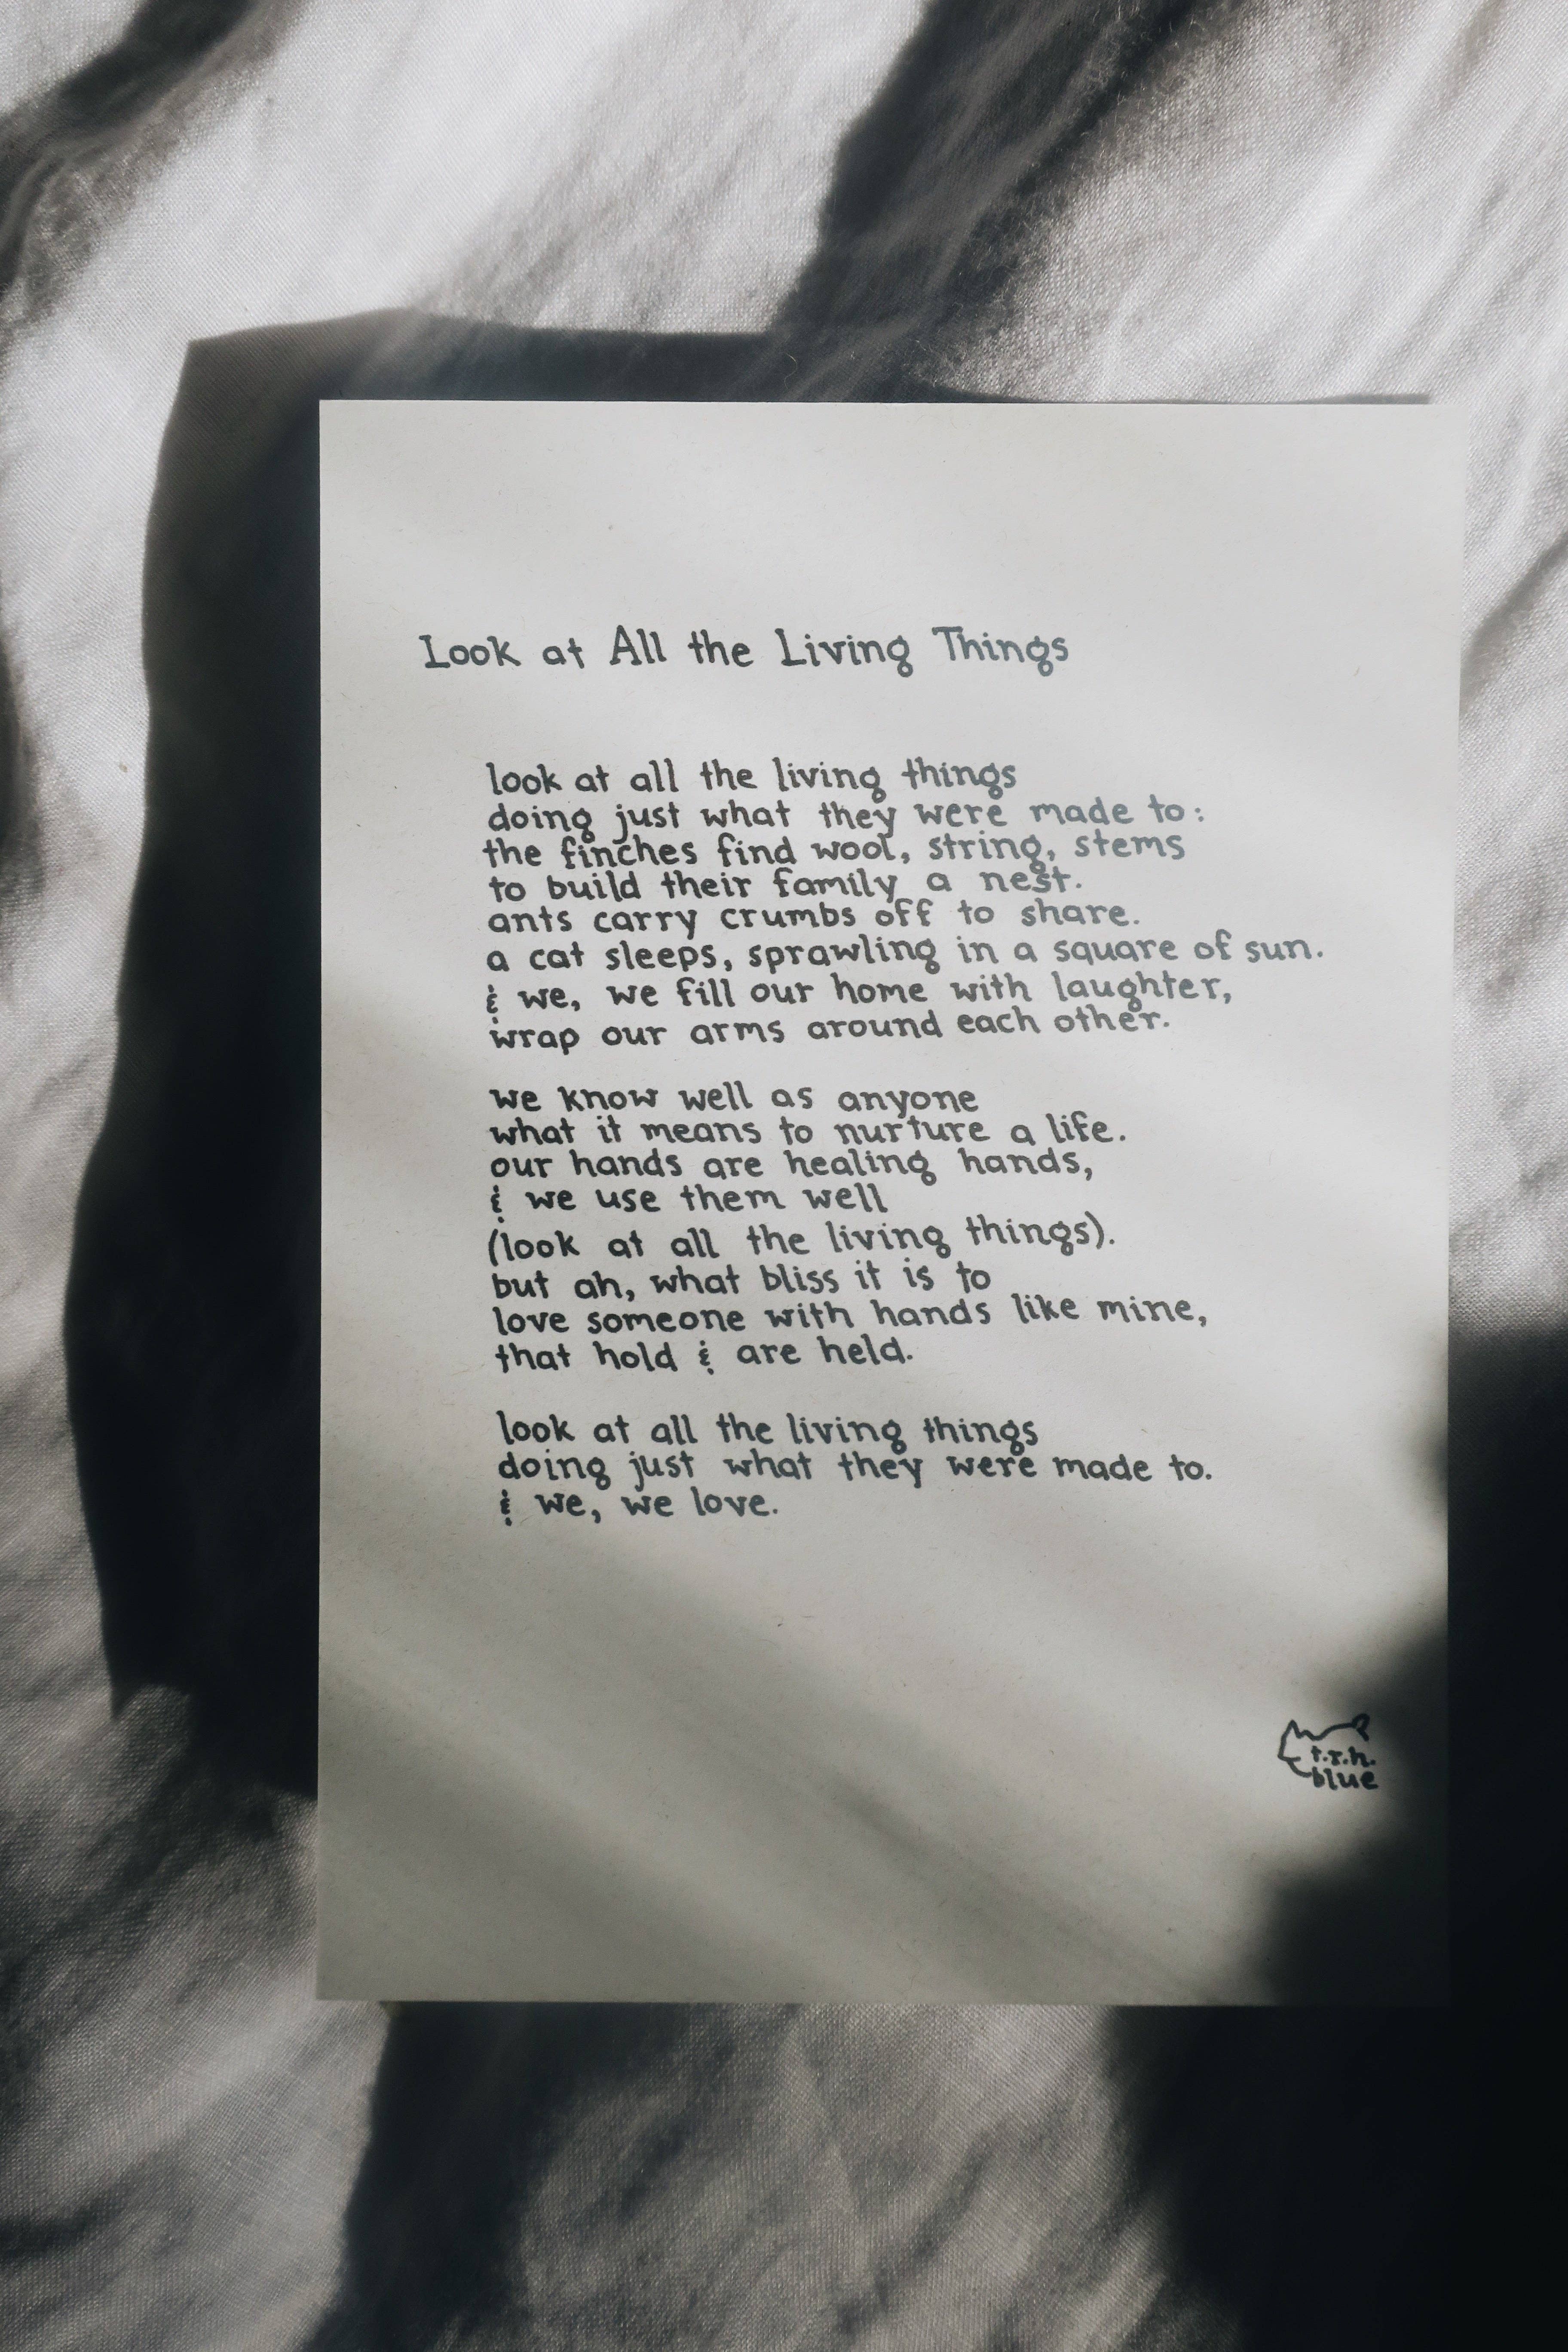 Look at All the Living Things
look at all the living things
doing just what they were made to:
the finches find wool, string, stems
to build their family a nest.
ants carry crumbs off to share.
a cat sleeps, sprawling in a square of sun.
& we, we fill our home with laughter,
wrap our arms around each other.
we know well as anyone
what it means to nurture a life.
our hands are healing hands,
& we use them well
(look at all the living things).
but ah, what bliss it is to
love someone with hands like mine,
that hold & are held.
look at all the living things
doing just what they were made to.
& we, we love.
t.r.h.
blue